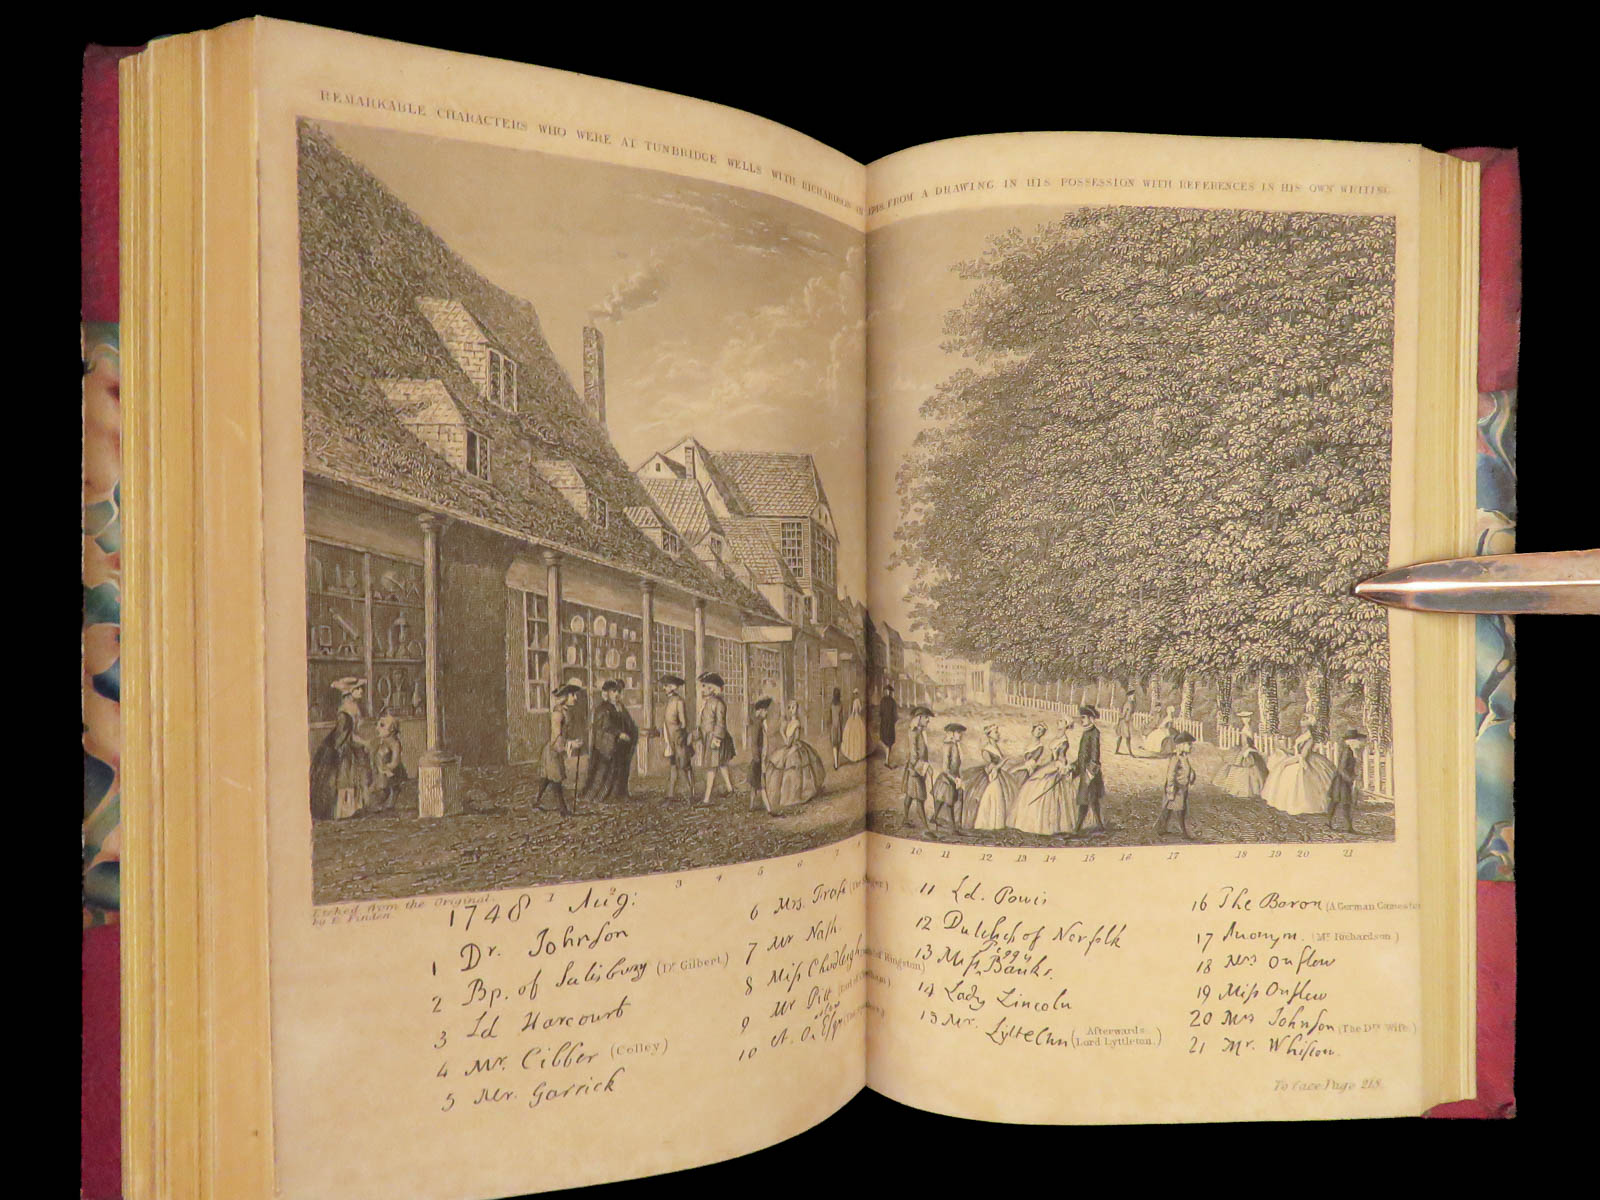 REMARKABLE CHARACTERS WHO WERE AT TUNBRIDGE WELLS WITH RICHARDSON IN 1748. FROM A DRAWING IN HIS POSSESSION WITH REFERENCES IN HIS OWN WRITING
1 2 3 4 5 6 7 8 9 10 11 12 13 14 15 16 17 18 19 20 21
Etched from the Original.
by E. Finden
1748 Aug:
1 Dr. Johnson
2 Bp. of Salisbury (Dr. Gilbert)
3 Ld Harcourt
4 Mr. Cibber (Colley)
5 Mr. Garrick
6 Mrs. Frasi
7 Mr Nash.
8 Miss Chudleigh of Kingston)
9 Mr Pitt (Earl of
10 A. Onslow Esqr
11 Ld. Powis
12 Dutchss of Norfolk
13 Miss Peggy Banks.
14 Lady Lincoln
15 Mr. Lyttelton (Afterwards Lord Lyttleton.)
16 The Baron (A German Gamester
17 Anonym. (Mr. Richardson)
18 Mrs Onslow
19 Miss Onslow
20 Mrs Johnson (The Drs. Wife)
21 Mr. Whiston.
To face Page 218.